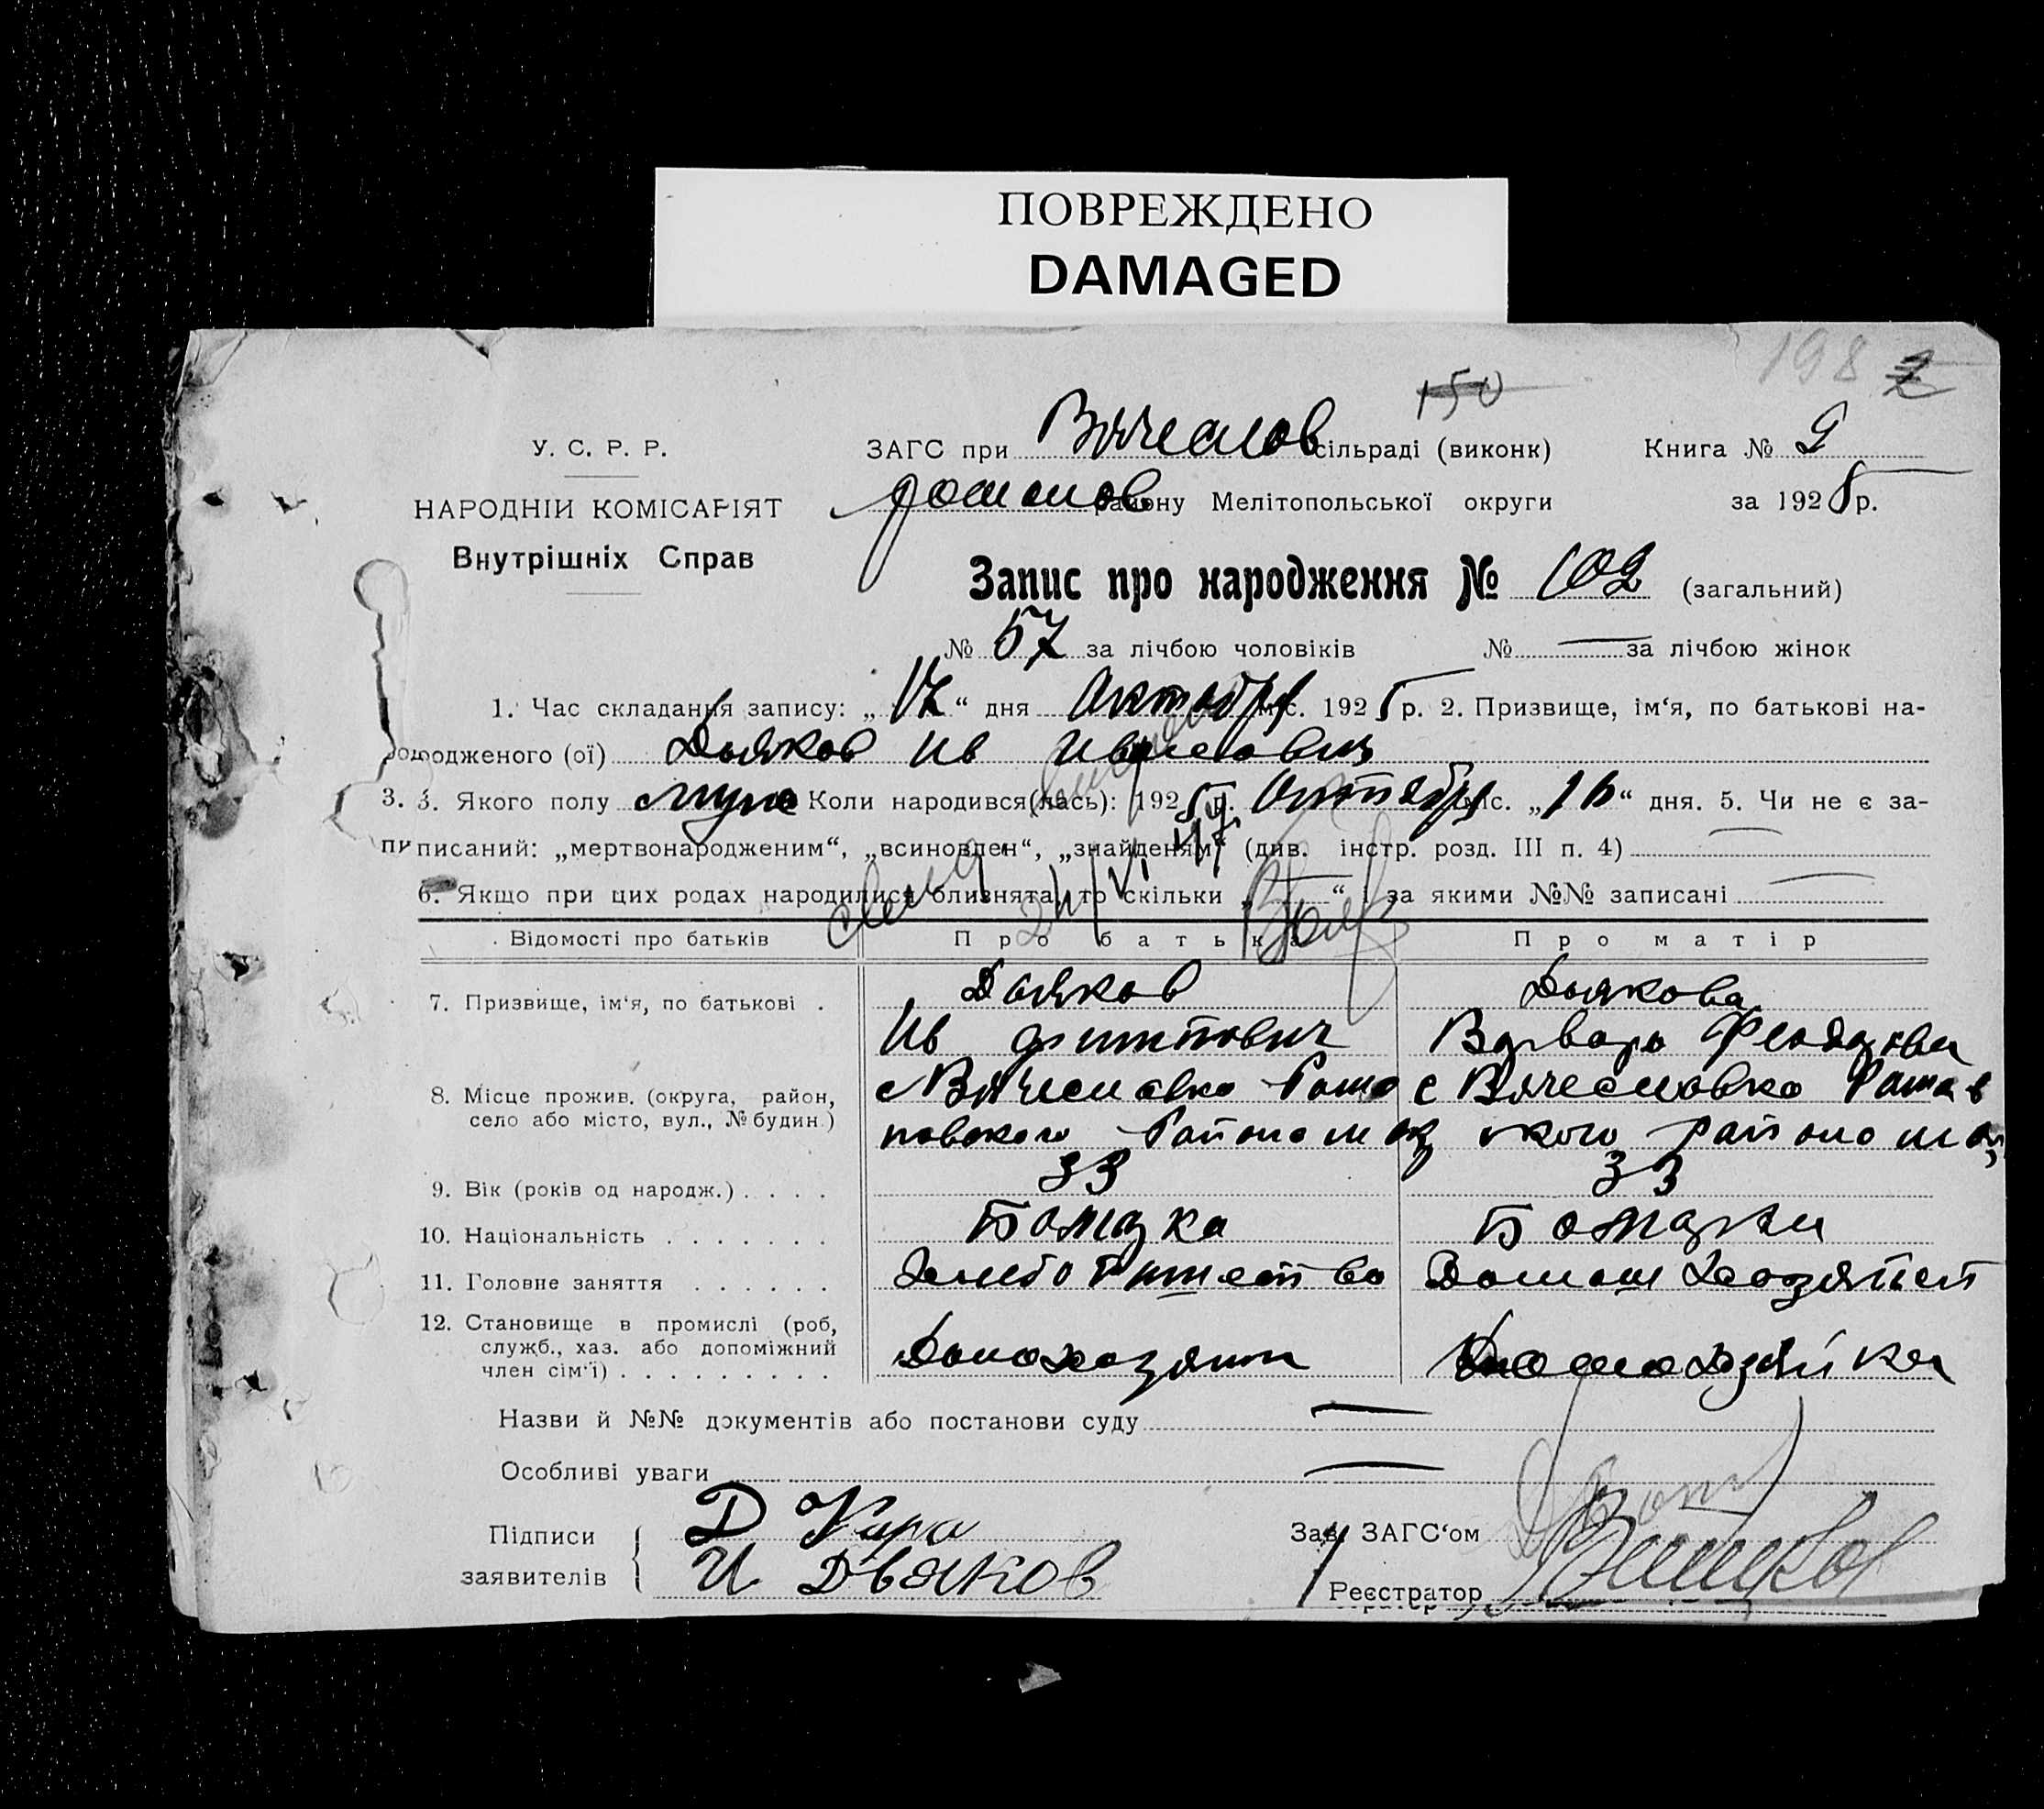 ПОВРЕЖДЕНО
DAMAGED
198
150
У. С. Р. Р.
ЗАГС при Вячеслов сільраді (виконк) Книга № 2
НАРОДНІЙ КОМІСАРІЯТ
района Мелітопольської округи за 1925 р.
Внутрішніх Справ
Запис про народження № 102 (загальний)
№ 57 за лічбою чоловіків № — за лічбою жінок
1. Час складання запису: „17“ дня Октября міс. 1925 р. 2. Призвище, ім‘я, по батькові на-
родженого (ої) Дьяков Ив Иванович
3. 3. Якого полу муж Коли народився(лась): 1925 р. Октября міс. „16“ дня. 5. Чи не є за-
писаний: „мертвонародженим“, „всиновлен“, „знайденям“ (див. інстр. розд. III п. 4) —
6. Якщо при цих родах народилися близнята, то скільки „—“ і за якими №№ записані —
Відомості про батьків Про батька Про матір
7. Призвище, ім‘я, по батькові . Дьяков Дьякова
Ив Филипович Варвара Феодоровна
8. Місце прожив. (округа, район, с Вячеславка Рома с Вячеславка Роман
село або місто, вул., № будин.) новского Района м ского района м
9. Вік (років од народж.) . . . . 33 33
10. Національність . . . . . . . Болгарка Болгарка
11. Головне заняття . . . . . . Хлебопашество Домаш Хозяйст
12. Становище в промислі (роб,
служб., хаз. або допоміжний Домохозяин Домохозяйка
член сім‘ї) . . . . . . . . .
Назви й №№ документів або постанови суду —
Особливі уваги —
Підписи Д Кара Зав. ЗАГС‘ом
заявителів И Дьяков Реєстратор